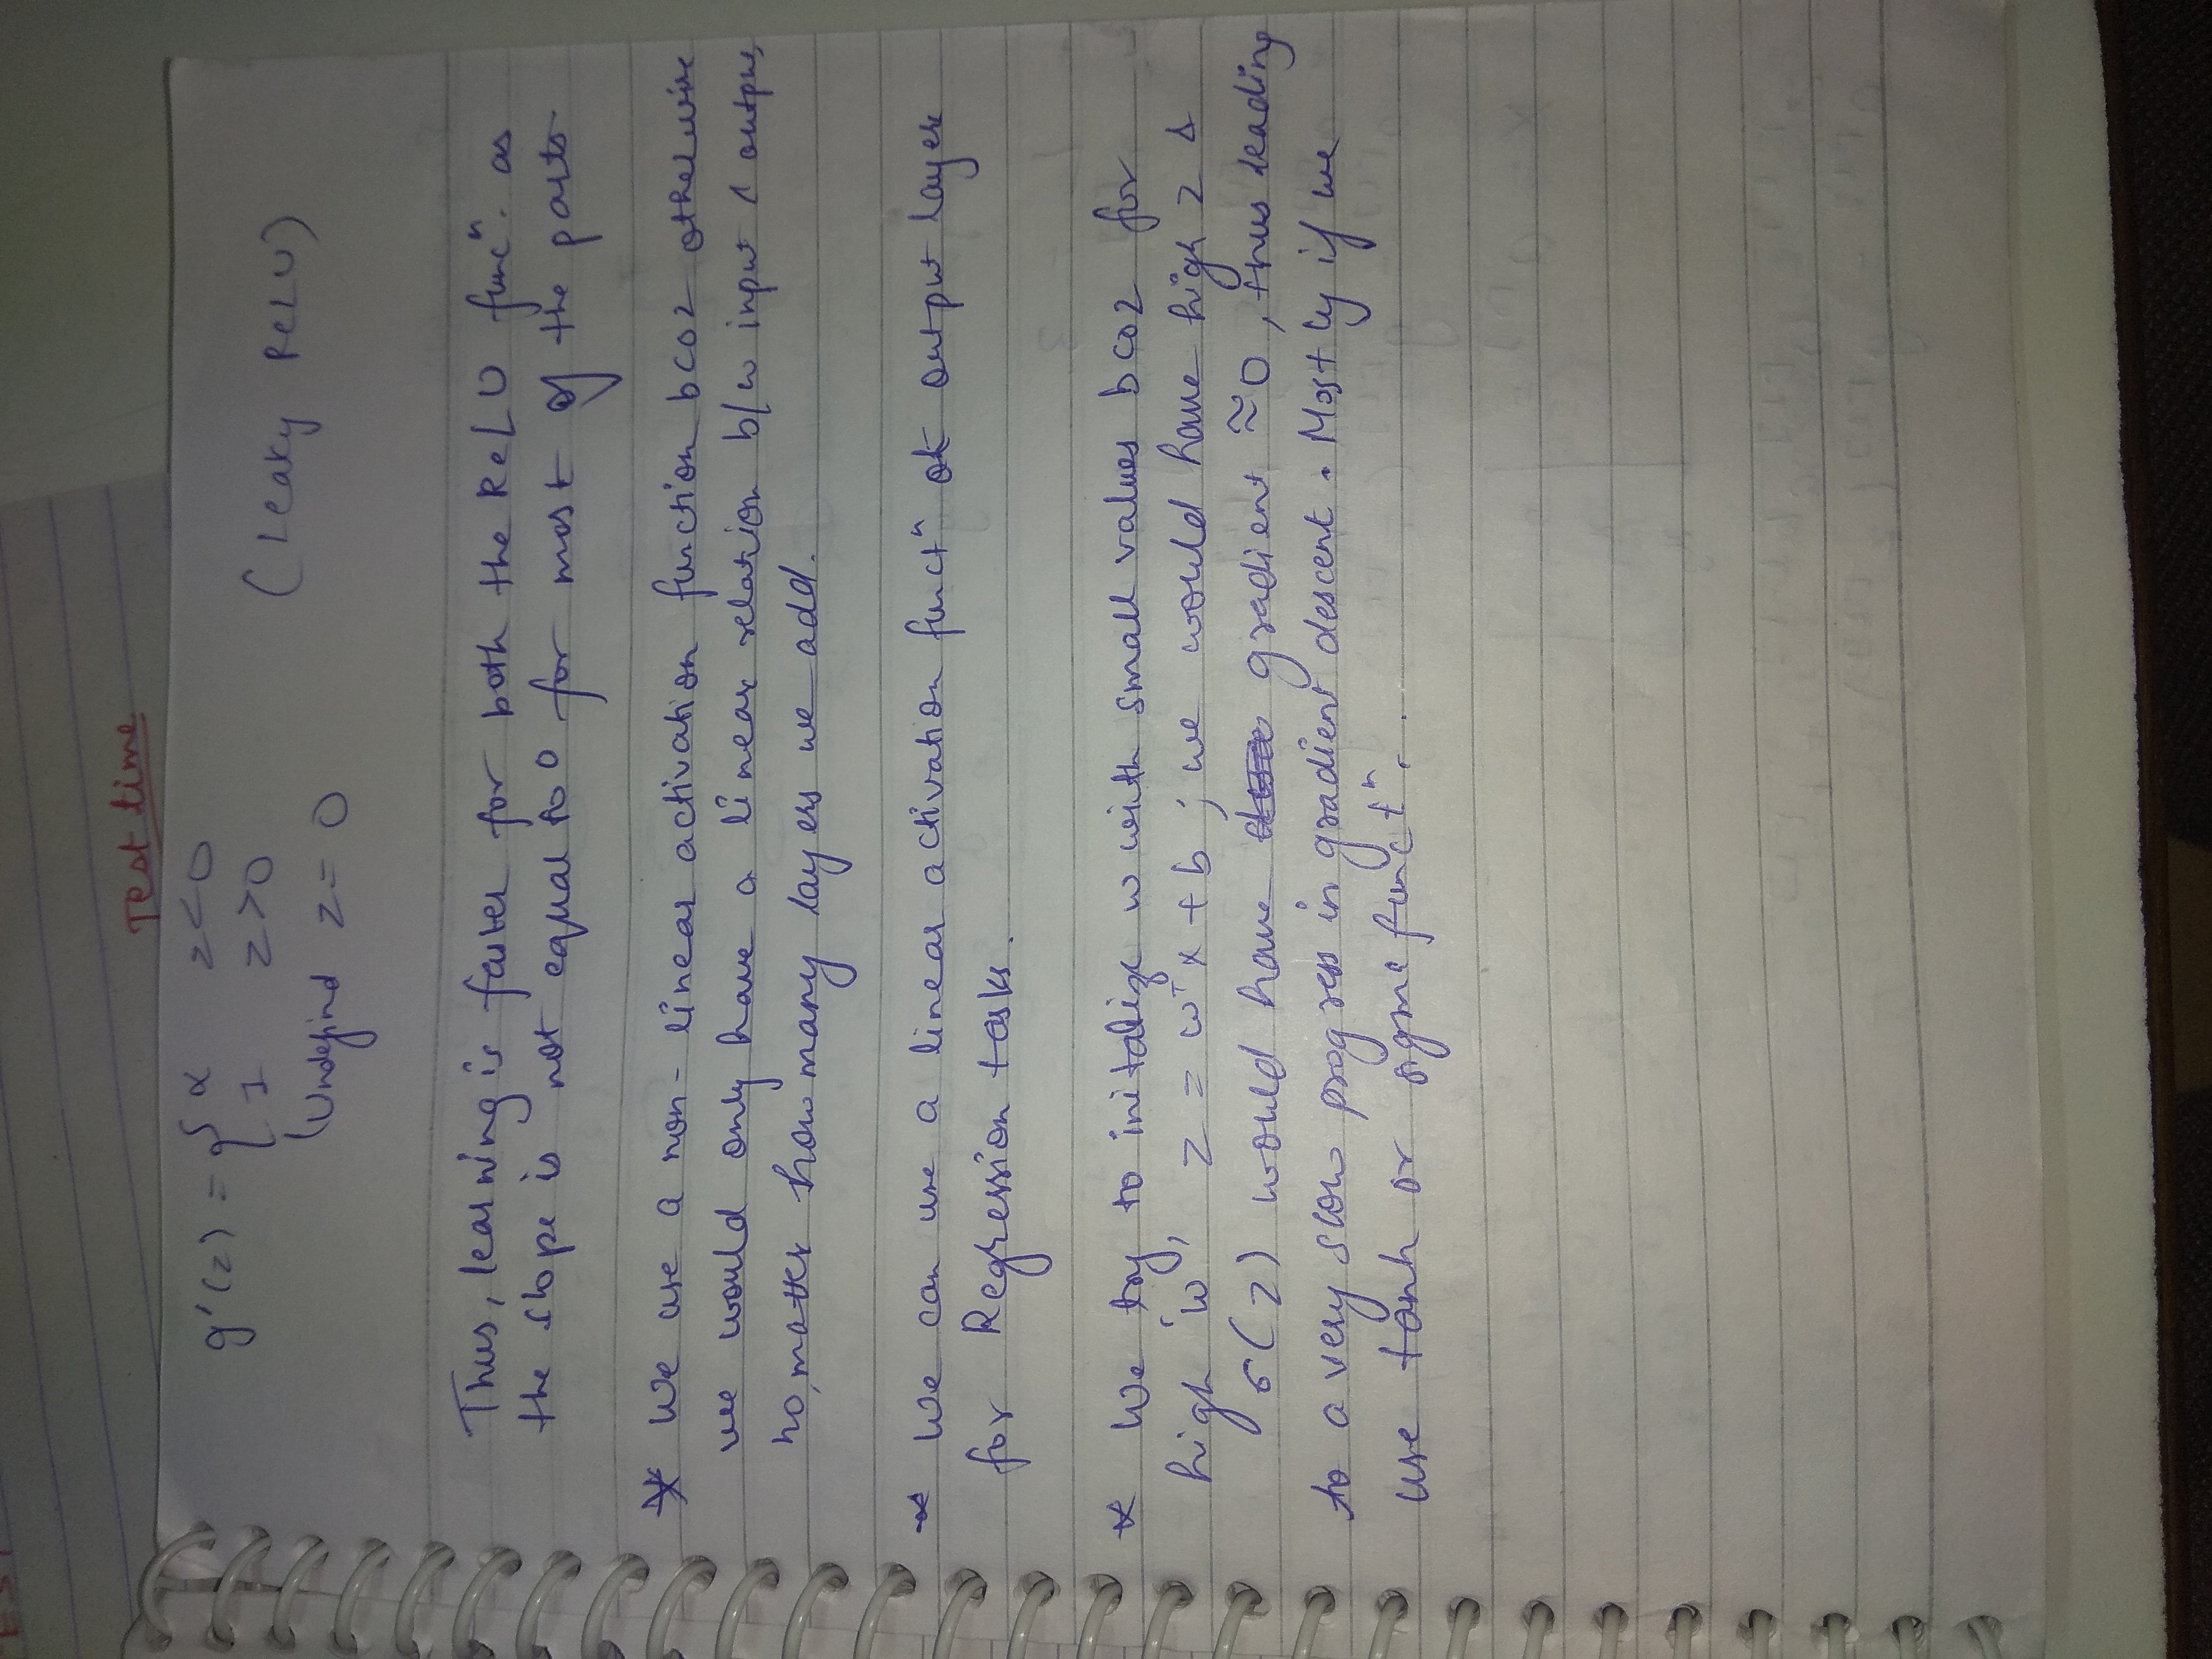 Test time
g'(z) = { α z<0
1 z>0 (Leaky ReLU)
Undefind z=0
Thus, learning is faster for both the ReLU funcⁿ. as
the slope is not equal to 0 for most of the parts
* We use a non-linear activation function bcoz otherwise
we would only have a linear relation b/w input & output,
no matter how many layers we add.
* We can use a linear activation functⁿ at output layer
for Regression tasks.
* We try to initalize w with small values bcoz for
high 'w, z = wᵀx + b ; we would have high z &
σ(z) would have gradient ≈ 0, thus leading
to a very slow progress in gradient descent. Mostly if we
use tanh or sigma functⁿ.